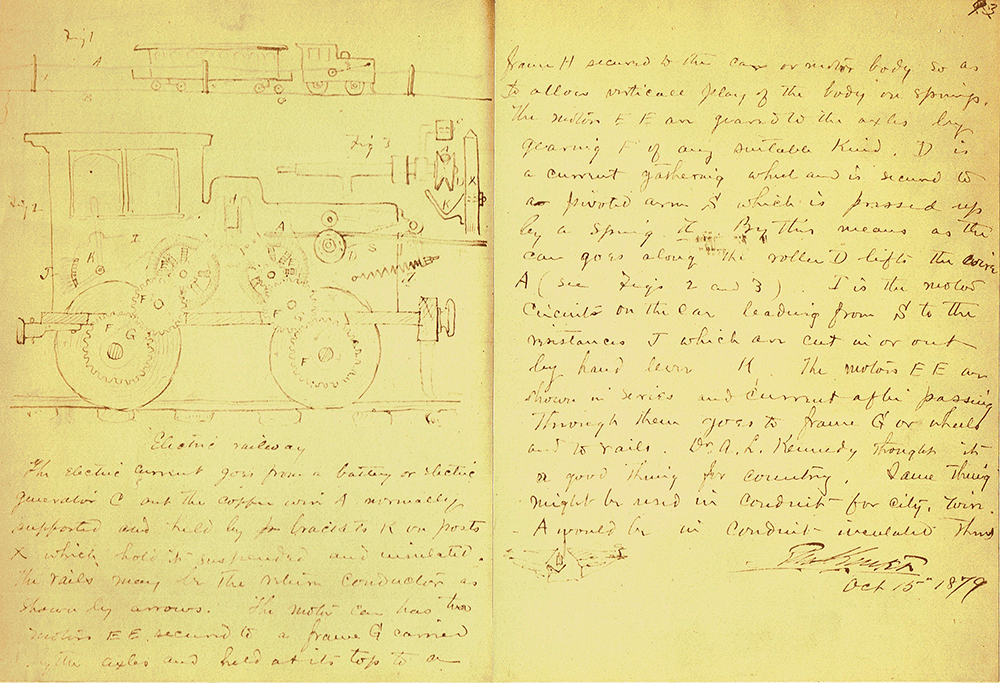 Fig 1
A
B
Fig 3
Fig 2
Electric railway
The electric current goes from a battery or electric
generator C out the copper wire A normally
supported and held by brackets K on posts
X which hold it suspended and insulated.
The rails may be the return conductor as
shown by arrows. The motor car has two
motors E E secured to a frame G carried
by the axles and held at its top to a
93
frame H secured to the car or motor body so as
to allow verticall play of the body on springs.
The motors E E are geared to the axles by
gearing F of any suitable kind. D is
a current gathering wheel and is secured to
a pivoted arm S which is pressed up
by a spring By this means as the
car goes along the roller D lifts the wire
A (see Figs 2 and 3). I is the motor
circuits on the car leading from S to the
resistances J which are cut in or out
by hand lever K. The motors E E are
shown in series and current after passing
through them goes to frame G or wheels
and to rails. Dr. A. L. Kennedy thought it
a good thing for country. Same thing
might be used in conduit for city, Wire
A would be in conduit insulated thus
Oct 15" 1879